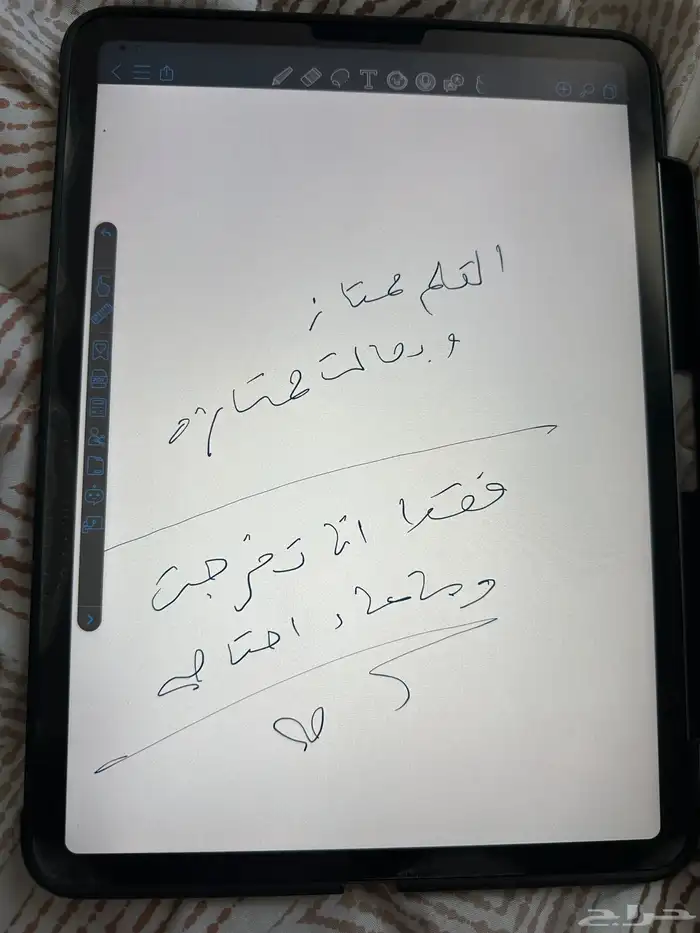 القلم ممتاز
وبحالت ممتازه
فقط انا تخرجت
وماعاد احتاجه
حراج